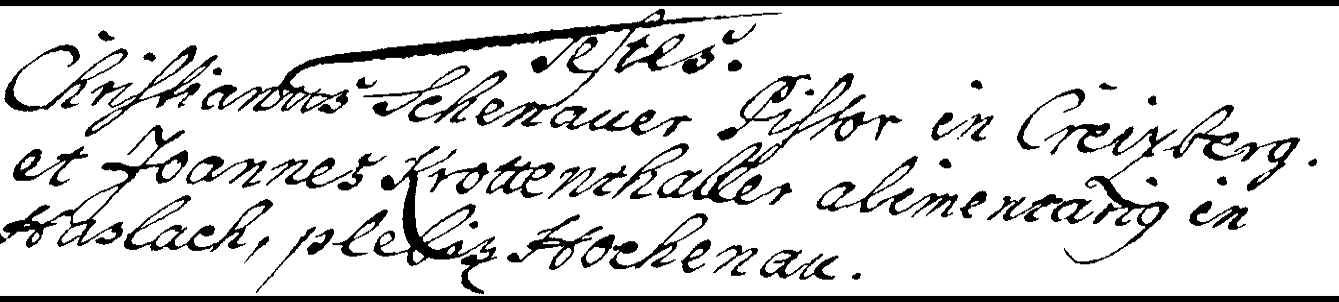 Testes.
Christianus Schenauer Pistor in Creixberg.
et Joannes Krottenthaller alimentarig in
Haslach, plebis Hochenau.